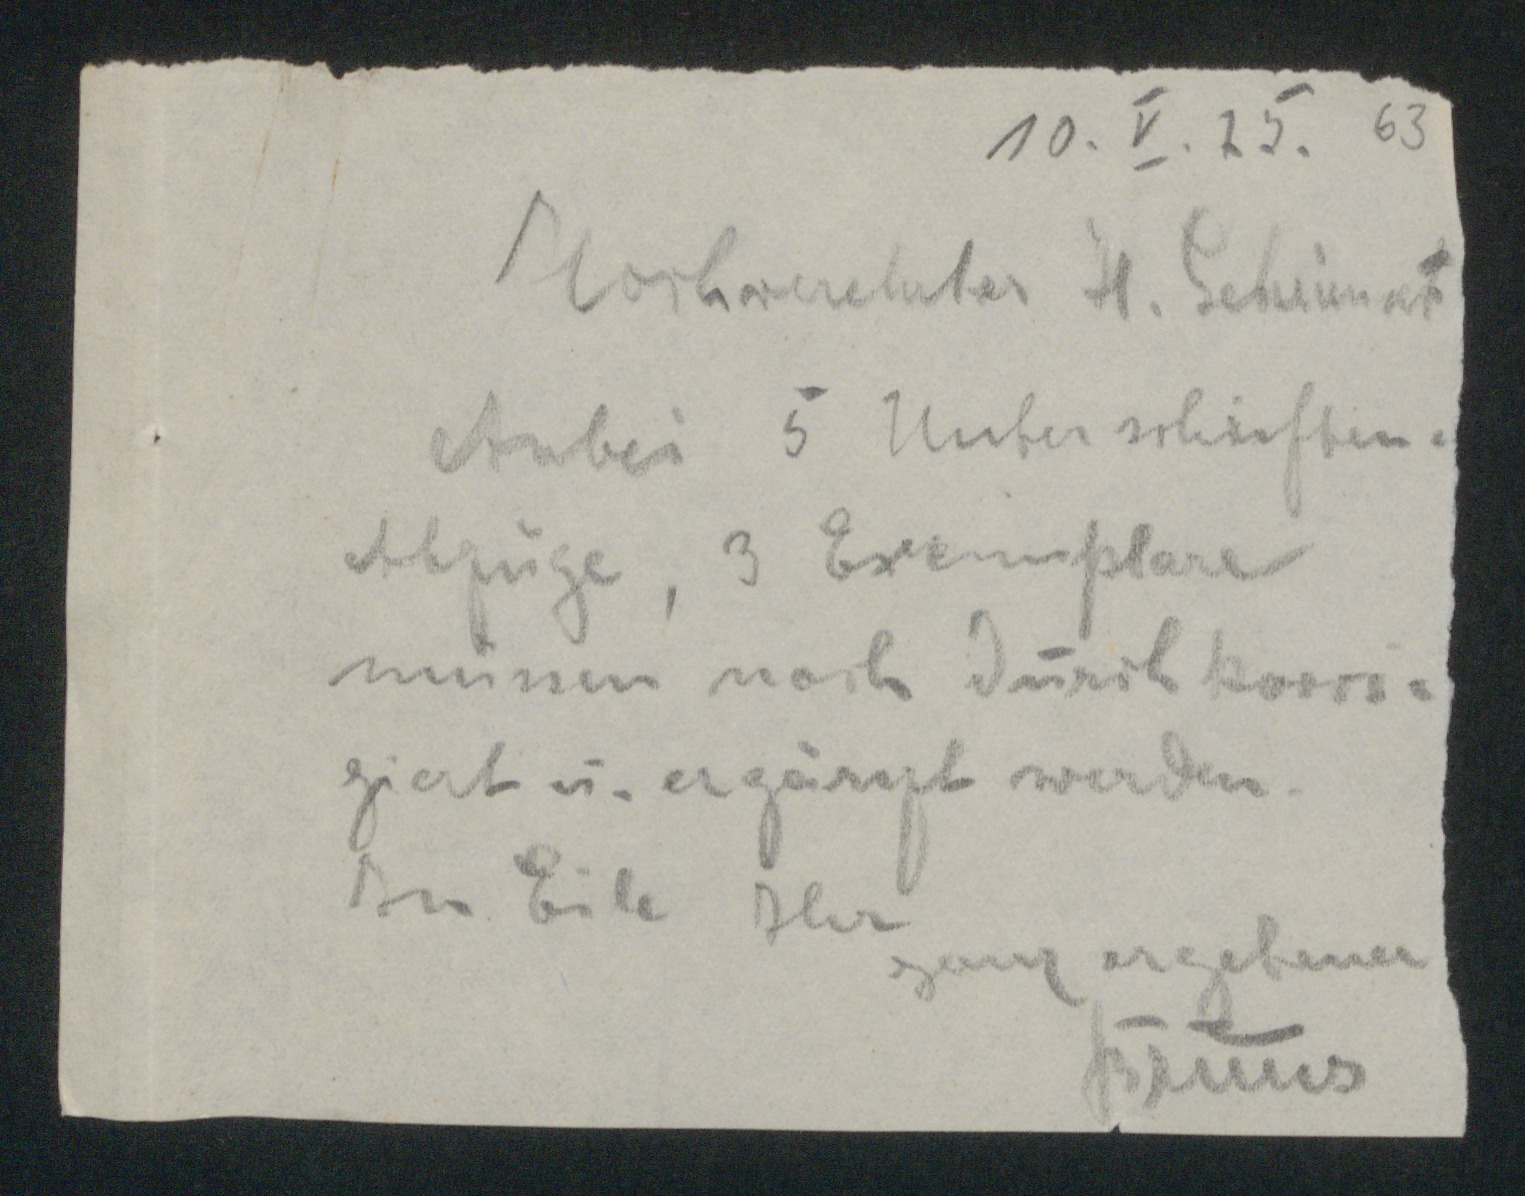 10. V. 25. 63
Hochverehrter H. Geheimrat
Anbei 5 Unterschriften-
Abzüge, 3 Exemplare
müssen noch durchkorri-
giert u. ergänzt werden.
In Eile Ihr
ganz ergebener